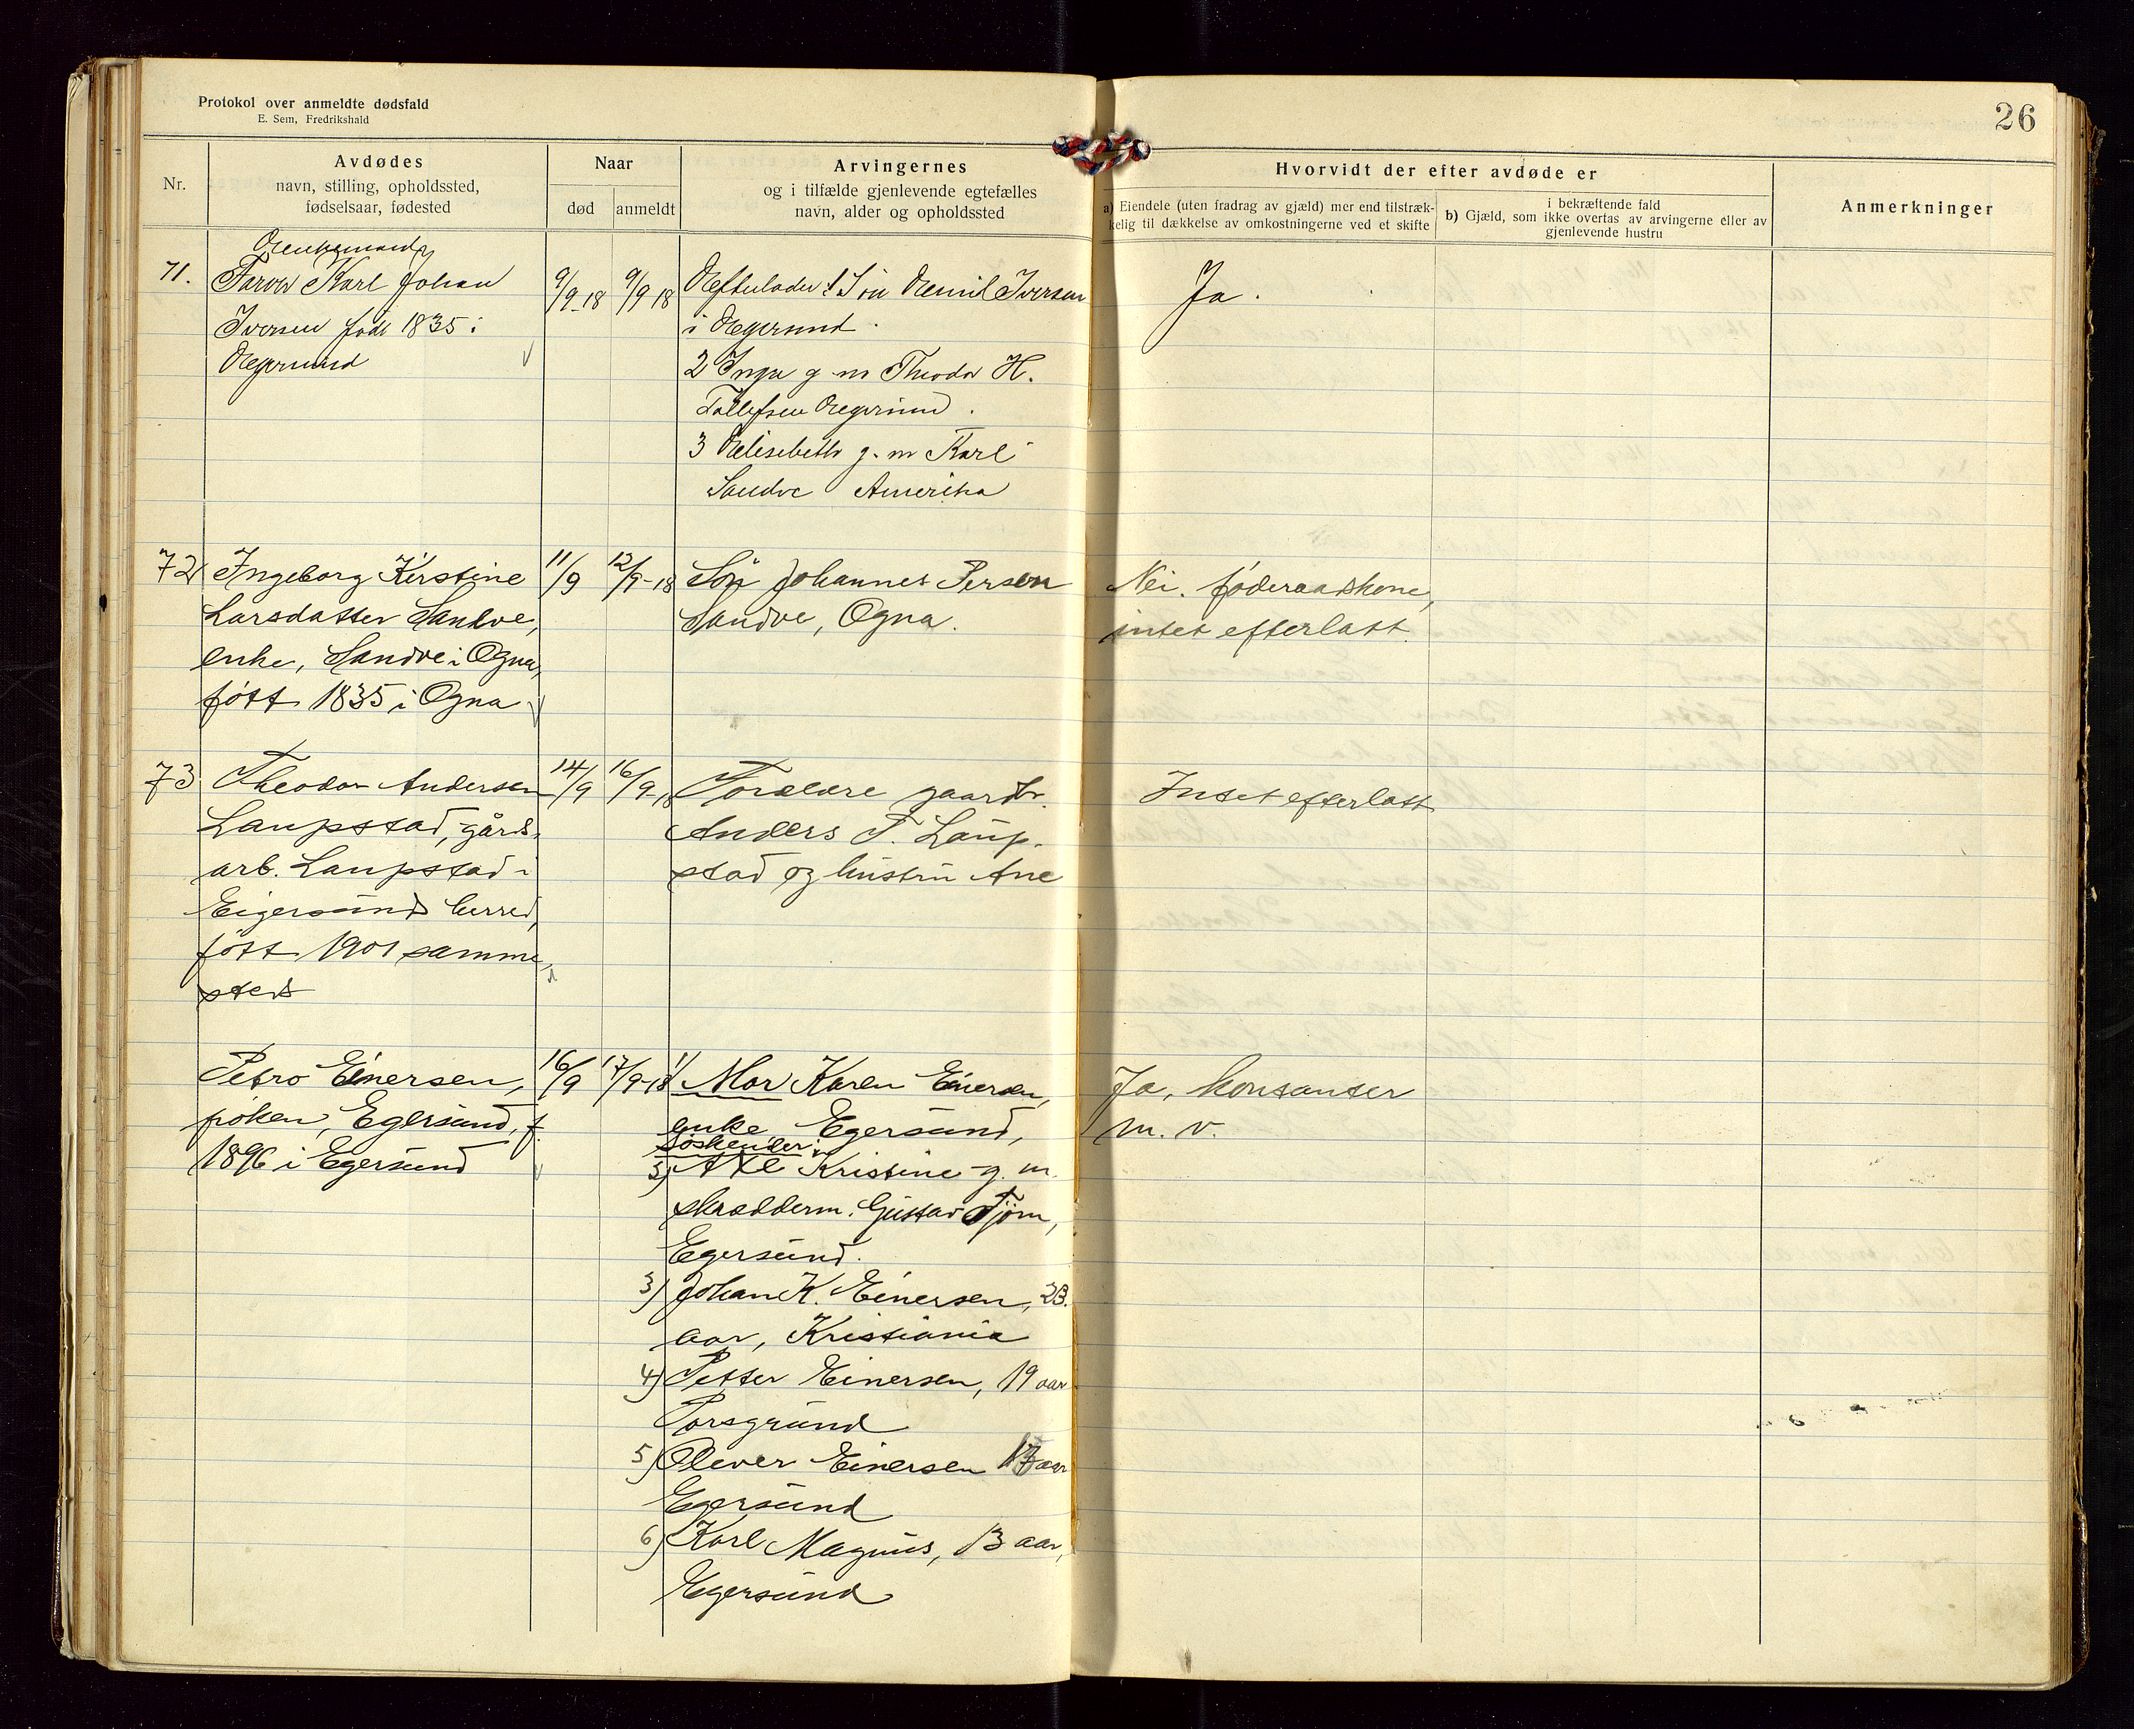 Protokol over anmeldte dødsfald
E. Sem, Fredrikshald
26
Nr.
Avdødes
navn, stilling, opholdssted,
fødselsaar, fødested
Naar
død
anmeldt
Arvingernes
og i tilfælde gjenlevende egtefælles
navn, alder og opholdssted
Hvorvidt der efter avdøde er
a) Eiendele (uten fradrag av gjæld) mer end tilstræk-
kelig til dækkelse av omkostningerne ved et skifte
i bekræftende fald
b) Gjæld, som ikke overtas av arvingerne eller av
gjenlevende hustru
Anmerkninger
71.
Enkemand
Farver Karl Johan
Iversen født 1835 i
Egersund
9/9-18
9/9 18
Efterlader: 1 Søn Emil Iversen
i Egersund.
2 Inga g. m Theodor H.
Tollefsen Egersund.
3 Elisebeth g. m Karl
Sandve Amerika
Ja.
72
Ingeborg Kirstine
Larsdatter Sandve,
enke, Sandve i Ogna,
født 1835 i Ogna
11/9
12/9-18
Søn Johannes Persen
Sandve, Ogna.
Nei. føderaadskone,
intet efterlatt.
73
Theodor Andersen
Laupstad, gårds-
arb. Laupstad i
Eigersund herred,
født 1901 samme-
steds
14/9
16/9-18
Forældre gaardbr.
Anders T. Laup-
stad og hustru Ane
Intet efterlatt
Petro Einersen,
pike, Egersund, f.
1896 i Egersund
16/9
17/9-18
1/ Mor Karen Einersen,
enke, Egersund,
Søskender:
2) Kristine g. m.
skrædderm. Gustav Tjørn,
Egersund.
3) Johan K. Einersen, 23.
aar, Kristiania
4) Petter Einersen, 19 aar
Porsgrund
5) Olever Einersen 17 aar
Egersund
6) Karl Magnus, 13 aar,
Egersund
Ja, kontanter
m. v.